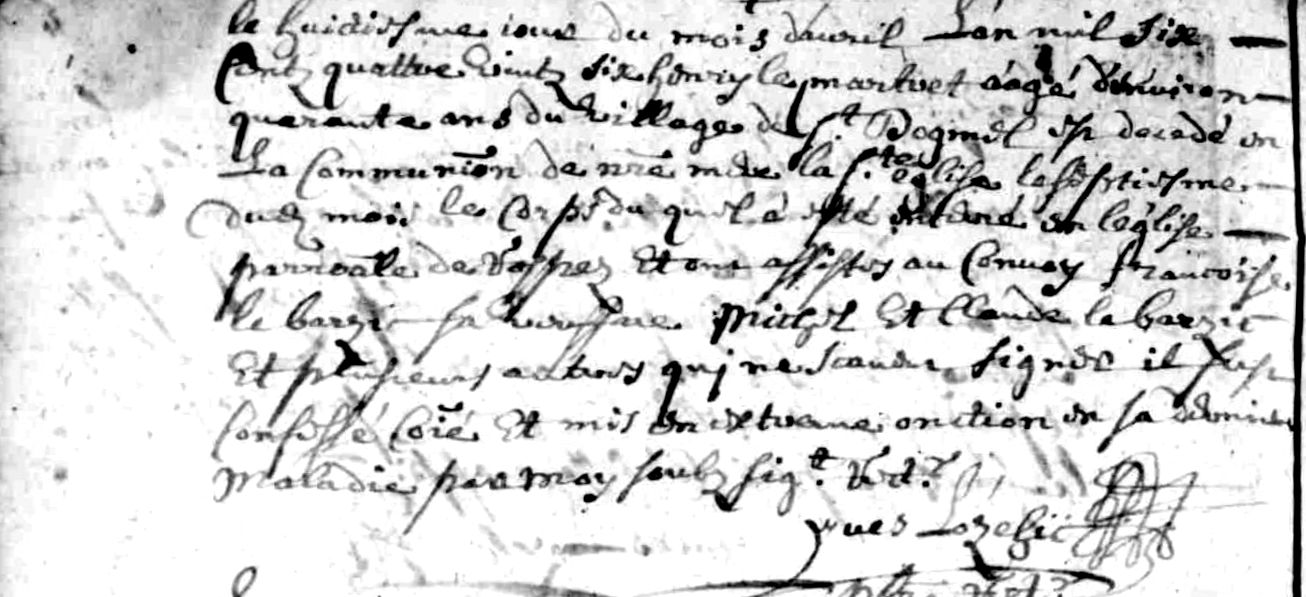 le huictiesme jour du mois d'avril L'an mil six
Centz quattre vintz six henry le martret aagé d'environ
quarante ans du village de St. Dogmel est decedé en
La Communion de nre mere la Ste. église le septiesme
dudt mois le Corps du quel a esté enterré en l'église
parroalle de Et ont assistes au Convoy francoise
le barzic sa veuffve Michel Et Claude le barzic
Et plusieurs autres qui ne scavent signer il fust
Confessé Coïé Et mis en extreme onction en sa derniere
Maladie par moy soubz sigt.
yves Lozehic